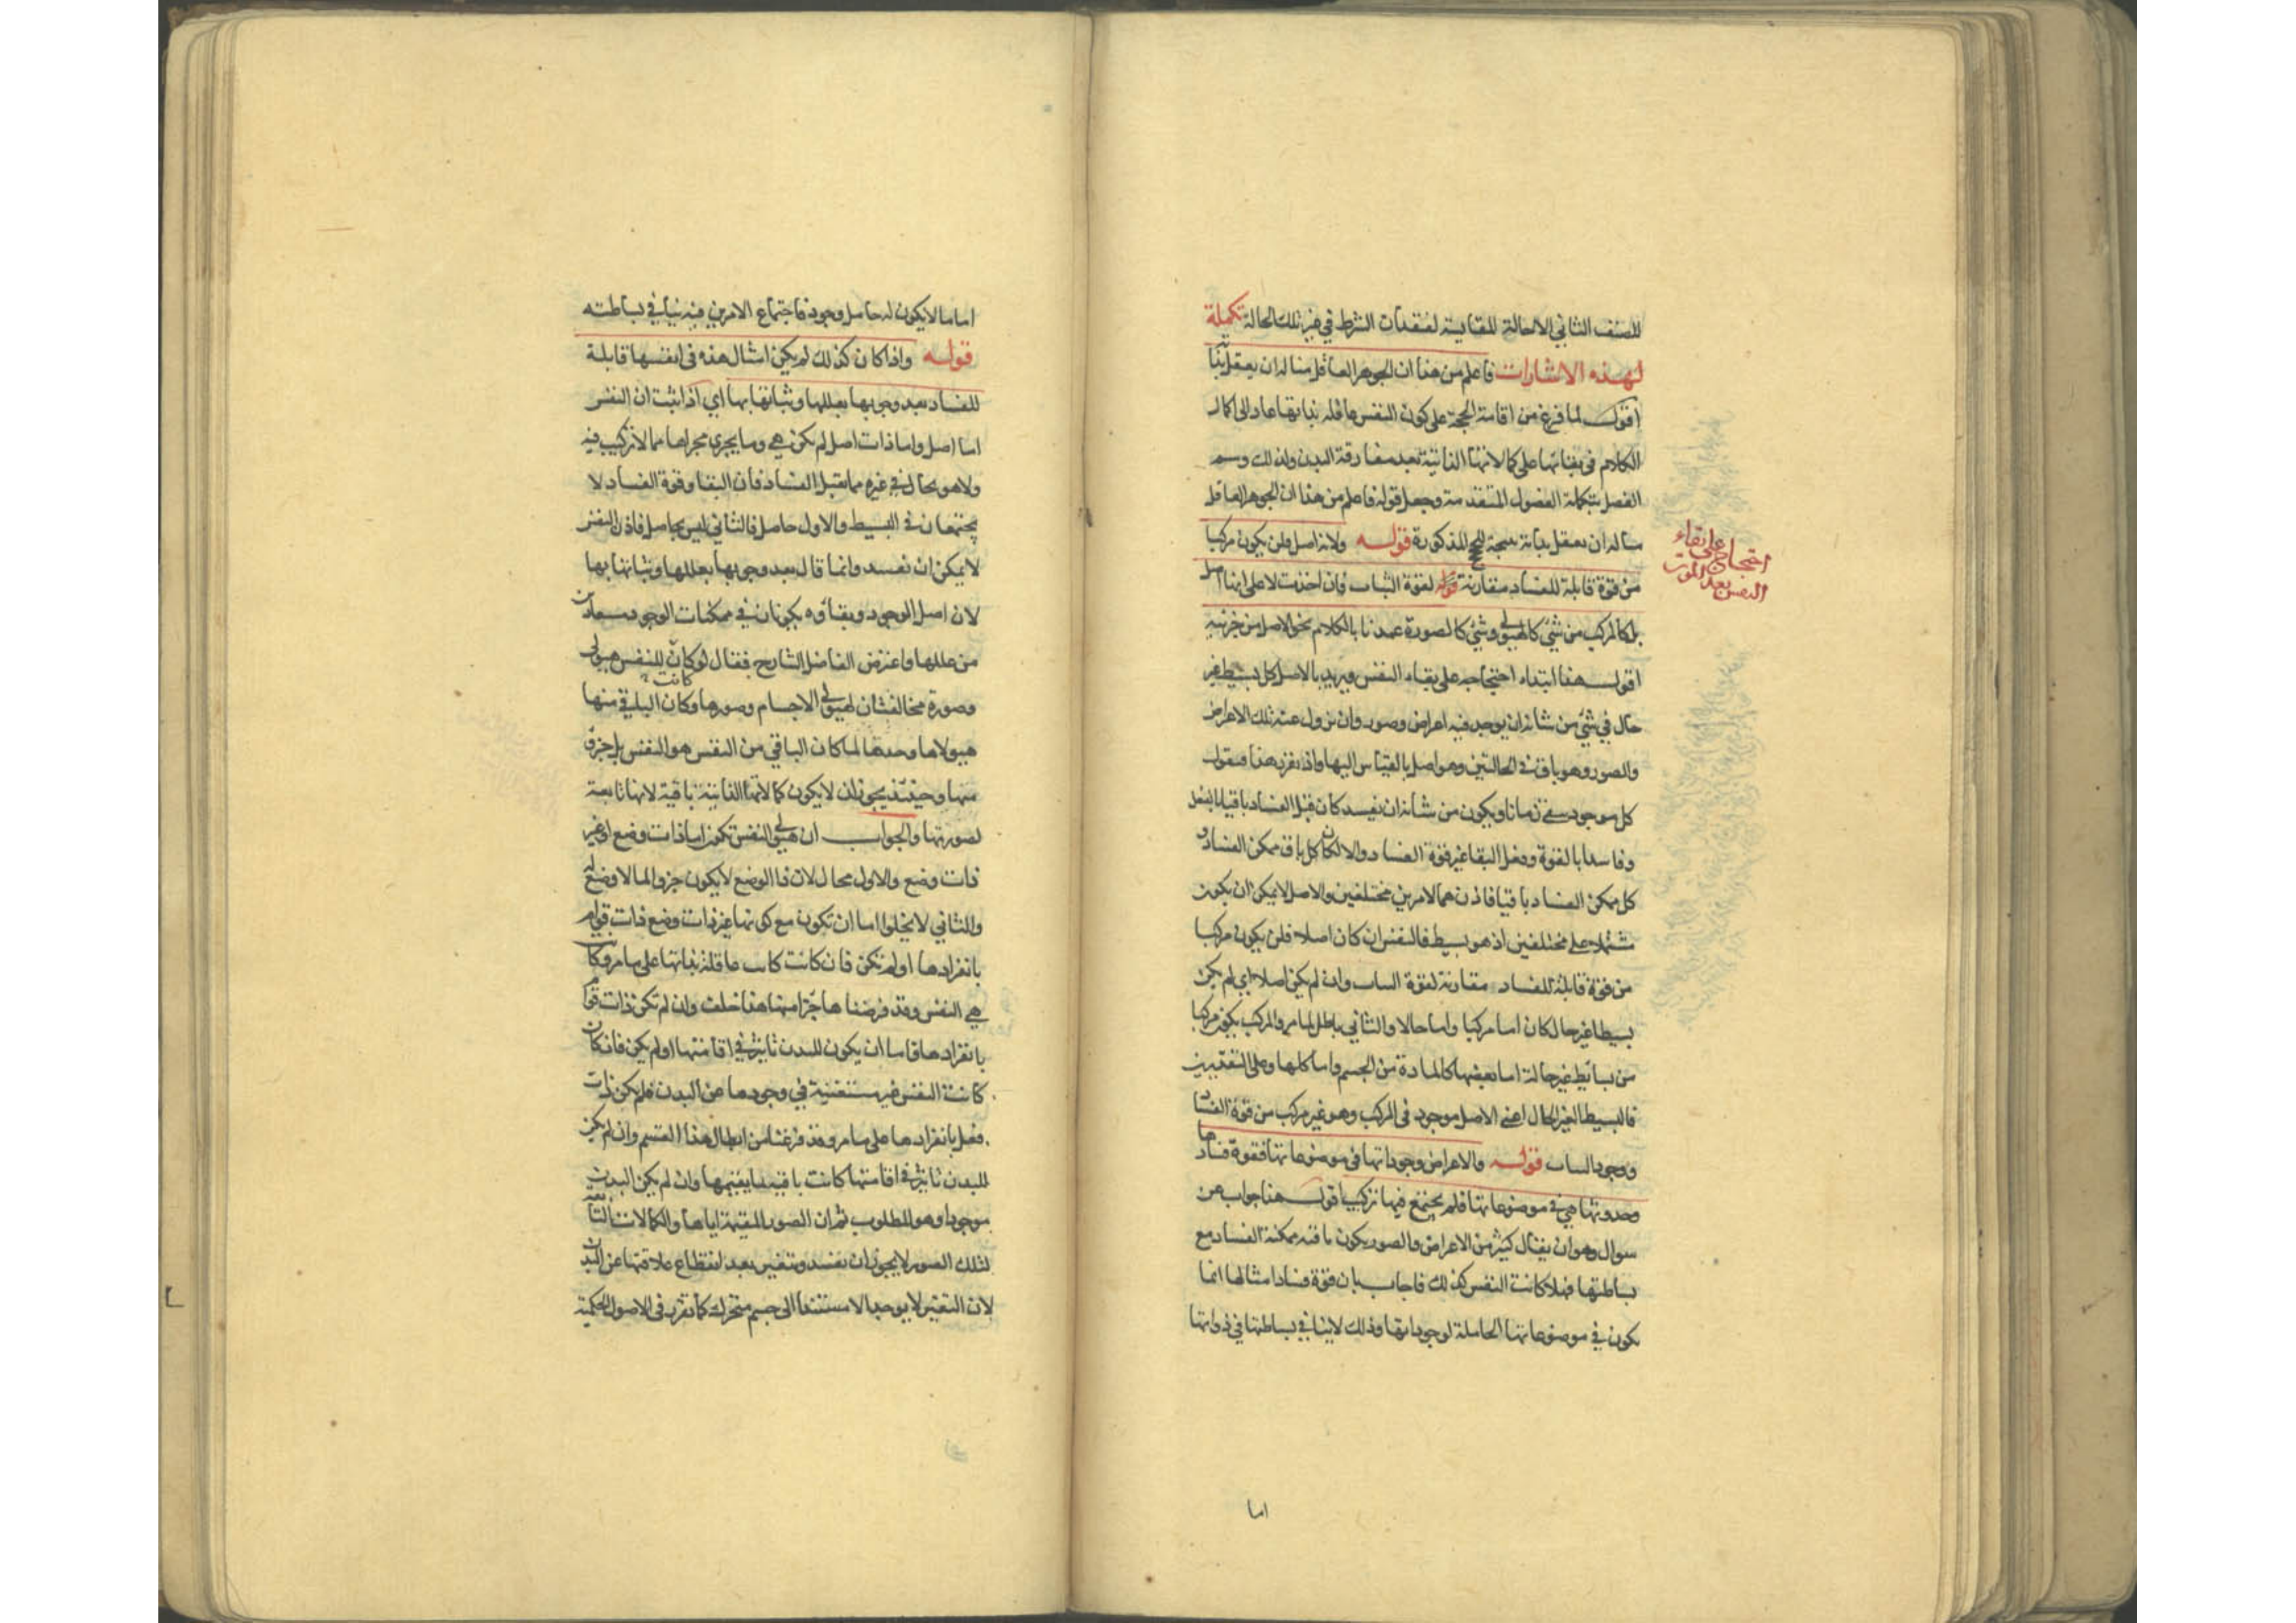 للصنف الثاني الا الحالة المقابسة لفقدان الشرط في غير تلك الحالة تكملة
لهذه الاشارات فاعلم من هذا ان الجوهر العاقل منا له ان يعقل بذاته
اقول لما فرغ من اقامة الحجة على كون النفس عاقلة بذاتها عاد الى اكمال
الكلام في بقائها على كمالاتها الذاتية بعد مفارقة البدن ولذلك وسم
الفصل بتكملة الفصول المتقدمة وجعل قوله فاعلم من هذا ان الجوهر العاقل
منا له ان يعقل بذاته نتيجة للحجج المذكورة قوله ولانه اصل فلن يكون مركبا
من قوة قابلة للفساد مقارنة قوله لقوة الثبات فان اخذت لا على انها اصل
بل كالمركب من شئ كالهيولى وشئ كالصورة عمدنا بالكلام نحو الاصل من جزئيه
اقول هذا ابتداء احتجاجه على بقاء النفس ويريد بالاصل كل بسيط غير
حال في شئ من شانه ان يوجد فيه اعراض وصور وان تزول عنه تلك الاعراض
والصور وهو باق في الحالتين وهو اصل بالقياس اليها واذ تقرر هذا فنقول
كل موجود يبقى زمانا ويكون من شانه ان يفسد كان قبل الفساد باقيا بالفعل
وفاسدا بالقوة وفعل البقا غير قوة الفساد والا لكان كل باق ممكن الفساد و
كل ممكن الفساد باقيا فاذن هما لامرين مختلفين والاصل لا يمكن ان يكون
مشتملا على مختلفين اذ هو بسيط فالنفس ان كان اصلا فلن يكون مركبا
من قوة قابلة للفساد مقارنة لقوة الثبات وان لم يكن اصلا اي لم يكن
بسيطا غير حال كان اما مركبا واما حالا والثاني باطل لما مر والمركب يكون مركبا
من بسائط غير حالة اما بعضها كالمادة من الجسم واما كلها وعلى التقديرين
فالبسيط الغير الحال اعني الاصل موجود في المركب وهو غير مركب من قوة الفساد
ووجود الثبات قوله والاعراض وجوداتها في موضوعاتها فقوة فسادها
وحدوثها هي في موضوعاتها فلم يجتمع فيها تركيب اقول هذا جواب عن
سوال وهو ان يقال كثير من الاعراض والصور يكون باقية ممكنة الفساد مع
بساطتها فهلا كانت النفس كذلك فاجاب بان قوة فساد امثالها انما
يكون في موضوعاتها الحاملة لوجوداتها وذلك لا ينافي بساطتها في ذواتها
اما
احتجاج على بقاء
النفس بعد الموت
اما ما لا يكون له حامل وجود فاجتماع الامرين فيه ينافي بساطته
قوله واذا كان كذلك لم يكن امثال هذه في انفسها قابلة
للفساد بعد وجوبها بعللها وثباتها بها اي اذا ثبت ان النفس
اما اصل واما ذات اصل لم يكن هي وما يجري مجراها مما لا تركيب فيه
ولا هو بحال في غيره مما يقبل الفساد فان البقا وقوة الفساد لا
يجتمعان في البسيط والاول حاصل فالثاني ليس بحاصل فاذن النفس
لا يمكن ان تفسد وانما قال بعد وجوبها بعللها وثباتها بها
لان اصل الوجود وبقاؤه يكونان في ممكنات الوجود مستفادين
من عللها واعترض الفاضل الشارح فقال لو كان للنفس هيولى
وصورة مخالفتان لهيولى الاجسام وصورها وكان الباقي منها
هيولاها وحدها لما كان الباقي من النفس هو النفس بل جزؤ
منها وحينئذ يجوز ان لا يكون كمالاتها الذاتية باقية لانها تابعة
لصورتها والجواب ان هيولى النفس تكون اما ذات وضع او غير
ذات وضع والاول محال لان ذا الوضع لا يكون جزو لما لا وضع له
والثاني لا يخلوا اما ان تكون مع كونها غير ذات وضع ذات قوام
بانفرادها او لم تكن فان كانت كانت عاقلة بذاتها على ما مر وكانت
هي النفس وقد فرضناها جزا منها هذا خلف وان لم تكن ذات قوام
بانفرادها فاما ان يكون للبدن تاثير في اقامتها او لم يكن فان كان
كانت النفس غير مستغنية في وجودها عن البدن فلم يكن ذات
فعل بانفرادها على ما مر وقد فرغنا من ابطال هذا القسم وان لم يكن
للبدن تاثير في اقامتها كانت باقية بما يقيمها وان لم يكن البدن
موجودا وهو المطلوب ثم ان الصور المقيمة اياها والكمالات التابعة
لتلك الصور لا يجوز ان تفسد وتتغير بعد انقطاع علاقتها عن البدن
لان التغير لا يوجد الا مستندا الى جسم متحرك كما تقرر في الاصول الحكمية